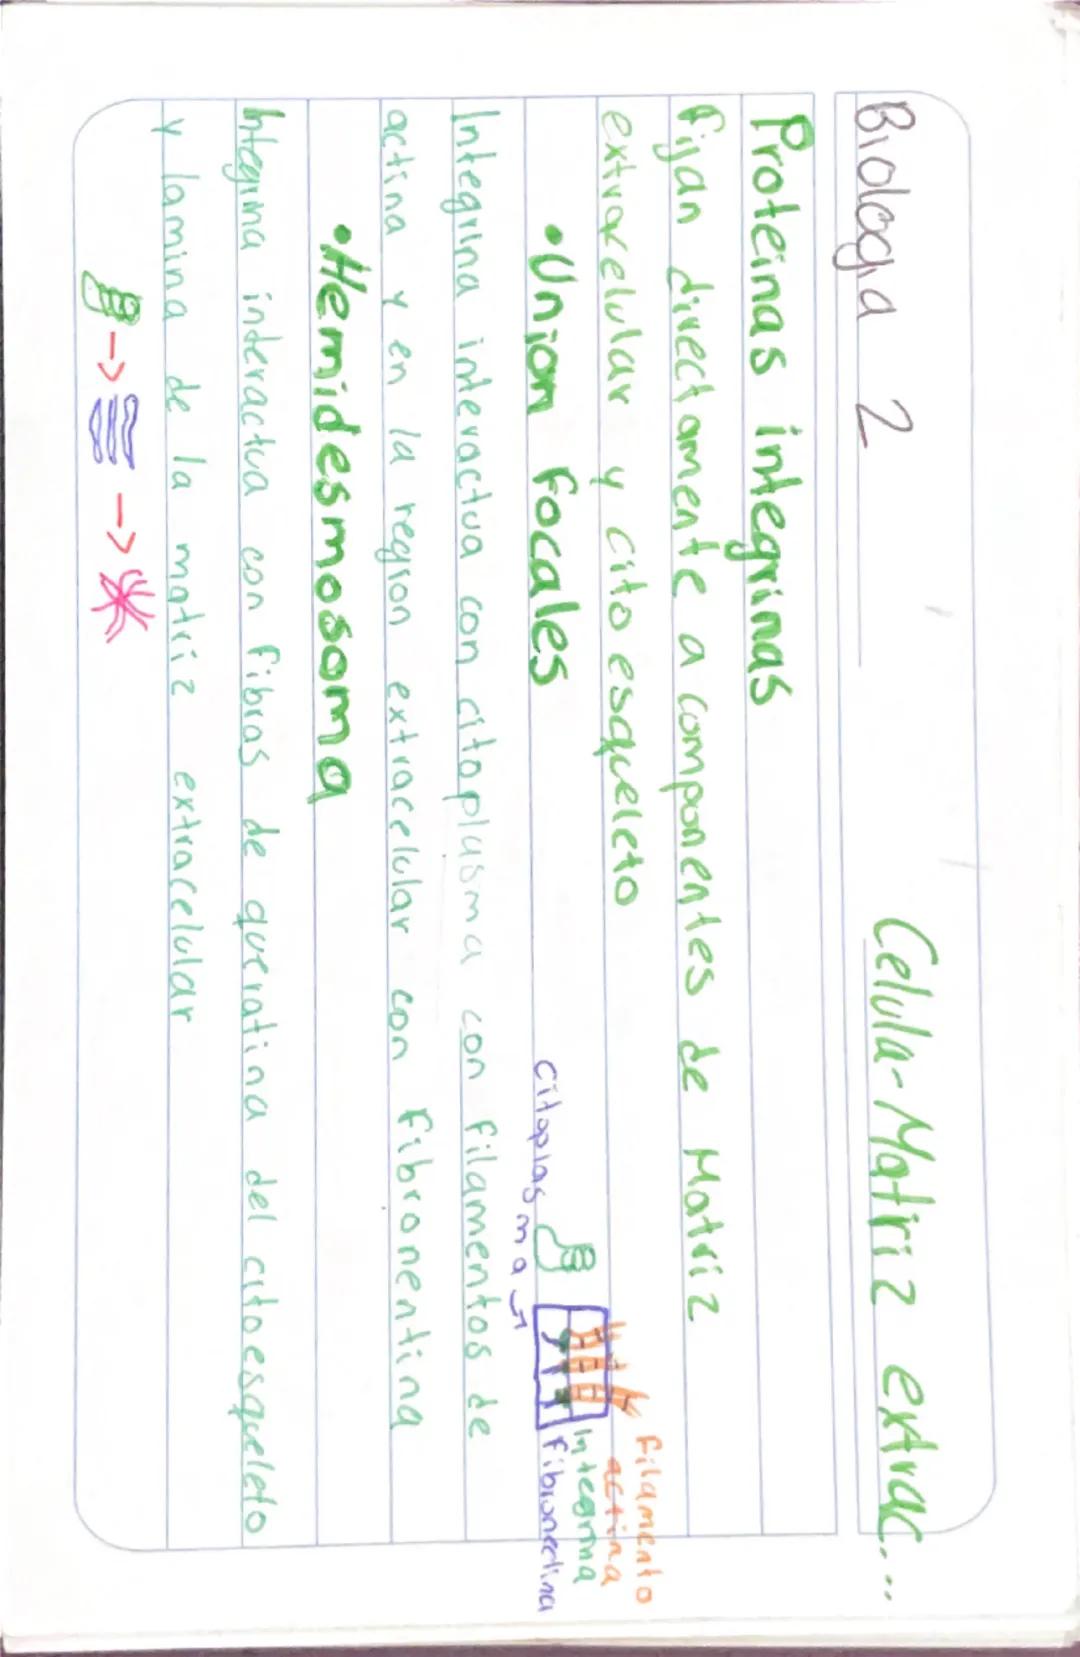 Biologia 2
Celula-Matriz extrac...
Proteinas integrinas
fijan directamente a componentes de Matriz
extracelular y citoesqueleto
Filamento
actina
Integrina
Fibronectina
citoplasma
•Union focales
Integrina interactua con citoplasma con filamentos de
actina y en la region extracelular con fibronentina
•Hemidesmosoma
Integrina interactua con fibras de queratina del citoesqueleto
y lamina de la matriz extracelular